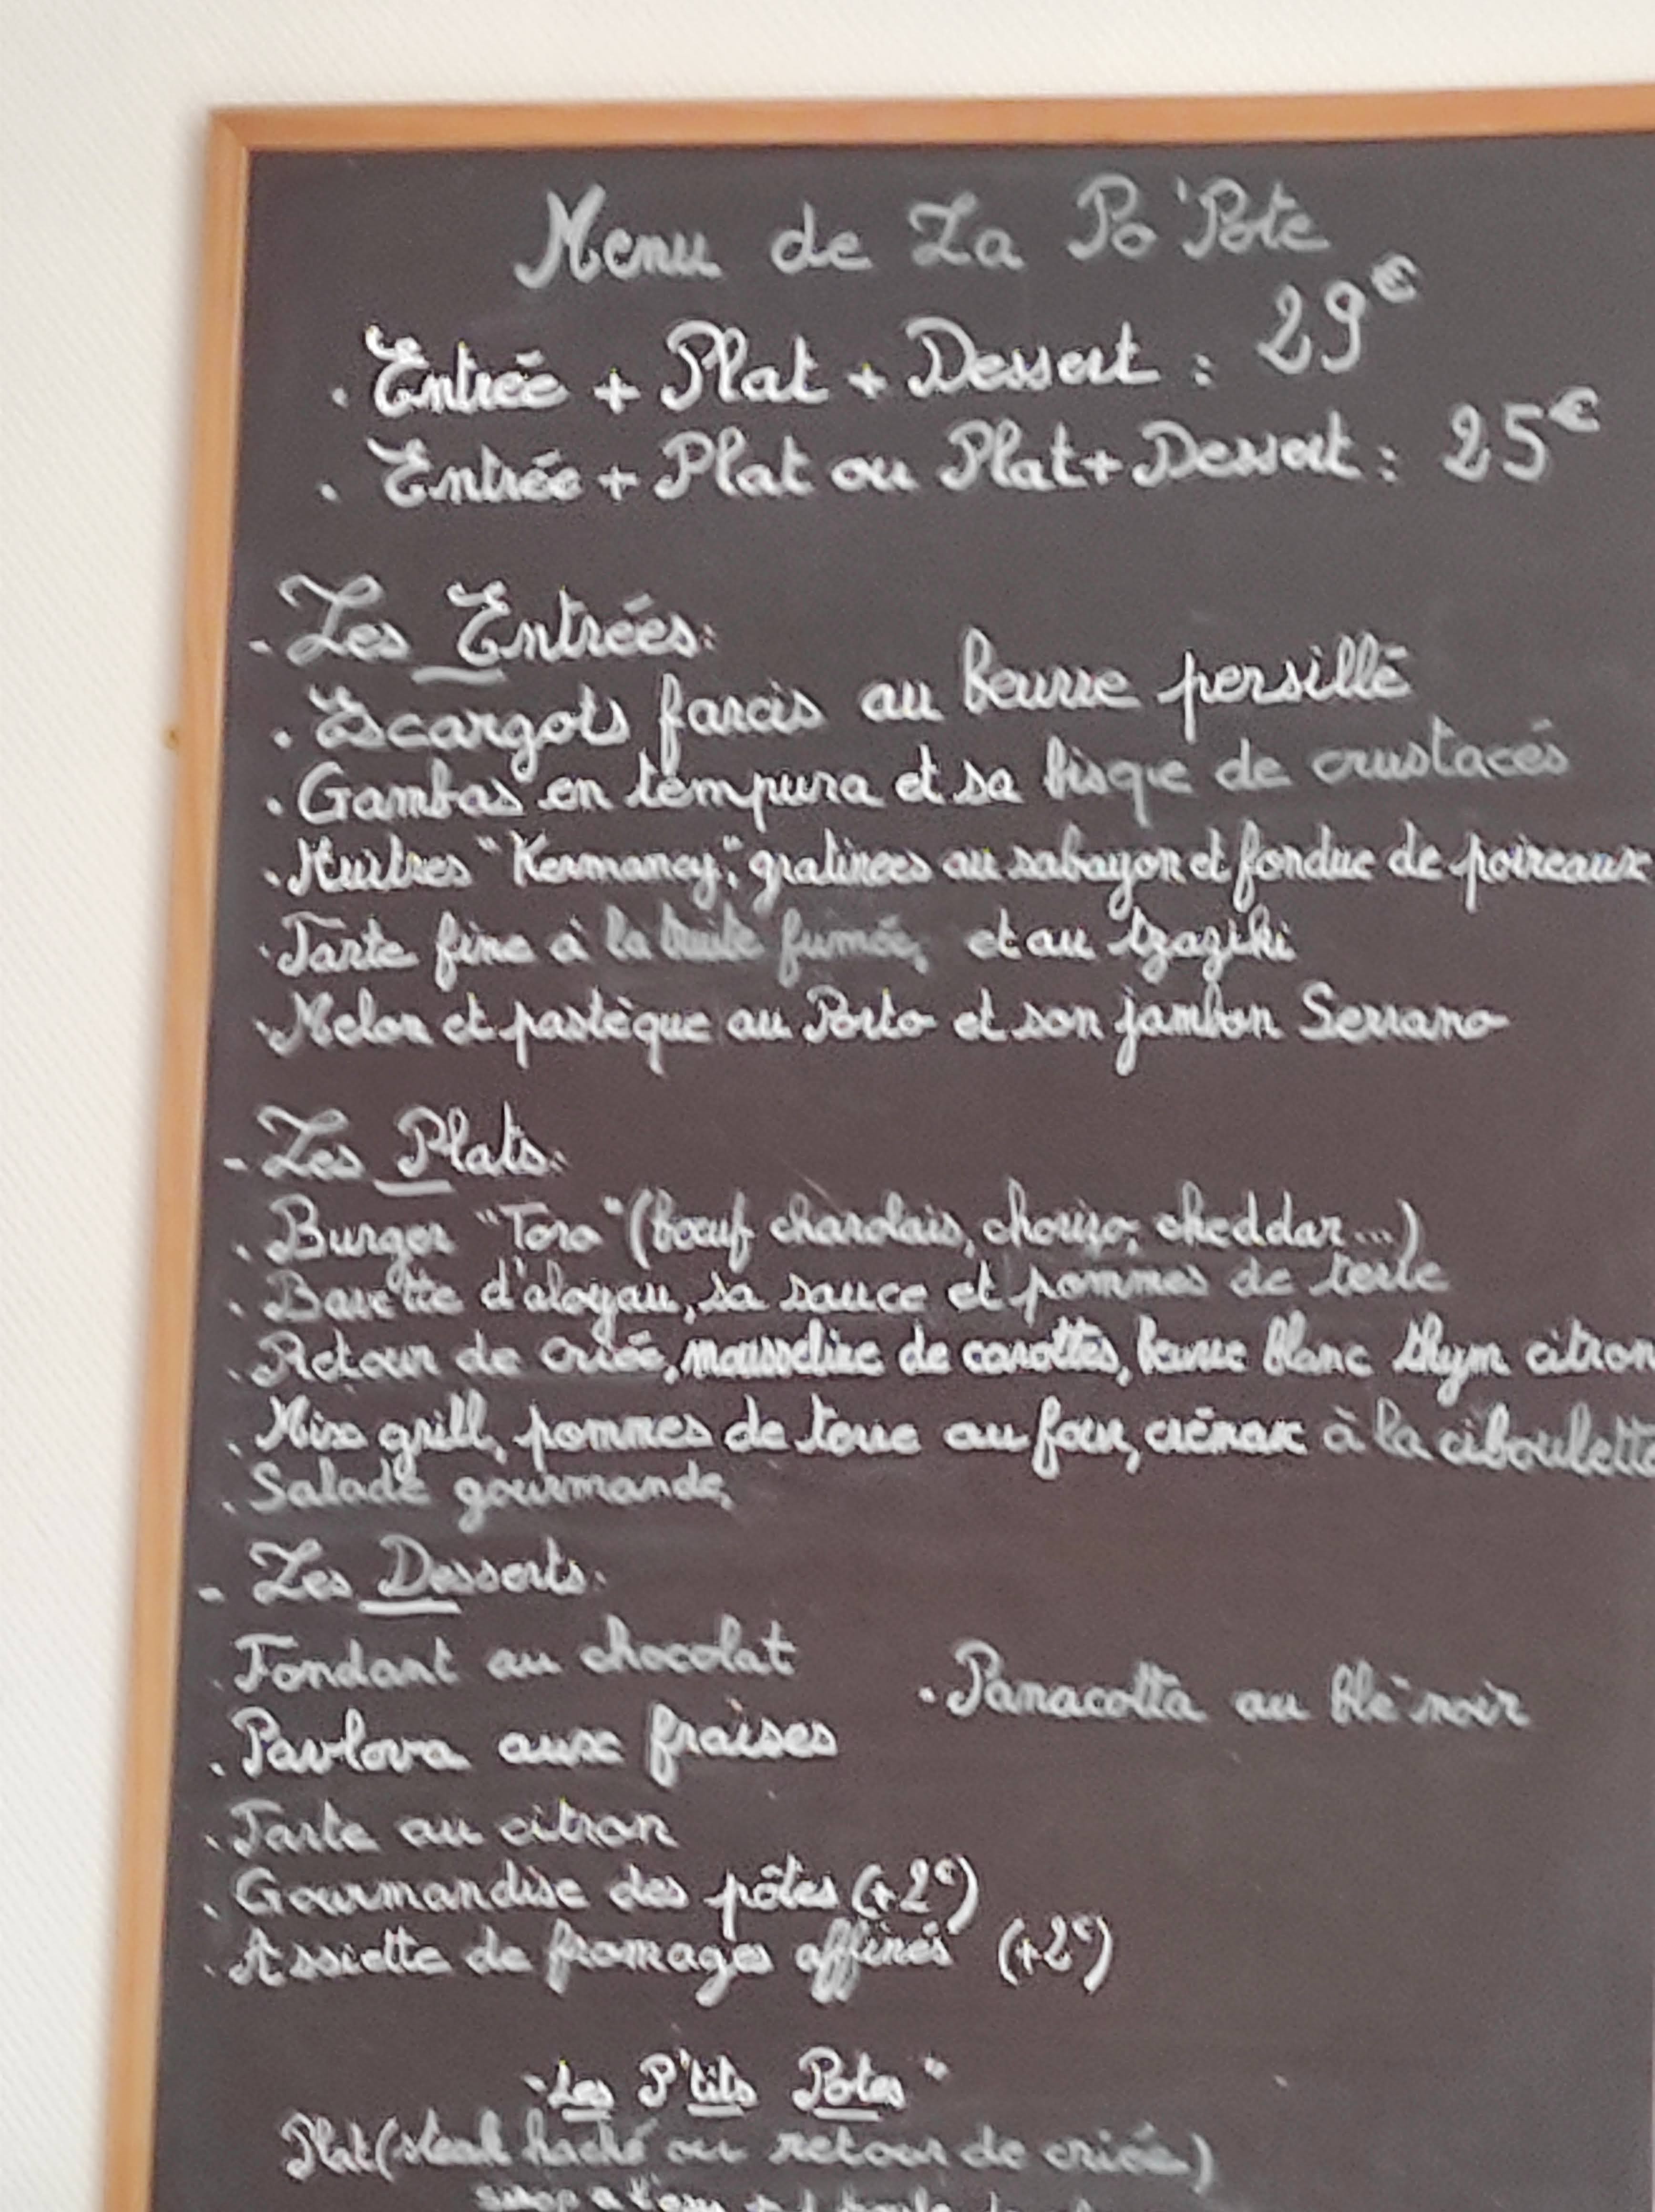 Menu de La Po'Pote
. Entrée + Plat + Dessert : 29€
. Entrée + Plat ou Plat + Dessert : 25€
- Les Entrées:
. Escargots farcis au beurre persillé
. Gambas en tempura et sa bisque de crustacés
. Huîtres "Kermancy", gratinées au sabayon et fondue de poireaux
. Tarte fine à la truite fumée, et au tzaziki
. Melon et pastèque au Porto et son jambon Serrano
- Les Plats:
. Burger "Toro" (bœuf charolais, chorizo, cheddar...)
. Bavette d'aloyau, sa sauce et pommes de terre
. Retour de criée, mousseline de carottes, beurre blanc thym citron
. Mix grill, pommes de terre au four, crémeux à la ciboulette
. Salade gourmande,
- Les Desserts:
. Fondant au chocolat
. Panacotta au blé noir
. Pavlova aux fraises
. Tarte au citron
. Gourmandise des pôtes (+2€)
. Assiette de fromages affinés (+2€)
"Les P'tits Potes"
Plat (steak haché ou retour de criée)
sirop à l'eau